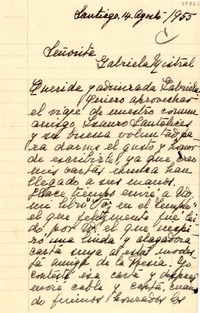 Santiago, 14 Agosto - 1955
Señorita
Gabriela Mistral
Querida y admirada Gabriela:
Quiero aprovechar
el viaje de nuestro común
amigo
y su buena voluntad pa-
ra darme el gusto y honor
de escribirle, ya que creo
mis cartas nunca han
llegado a sus manos.
Hace tiempo envié a Ud.
mi libro "Yo, en el tiempo"
el que felizmente fué leí-
do por Ud. el que inspi-
ró una linda y alagadora
carta suya al estar
la amiga de la Yo
contesté esa carta y después
envié cable y carta, cuan-
do fuimos honrados los